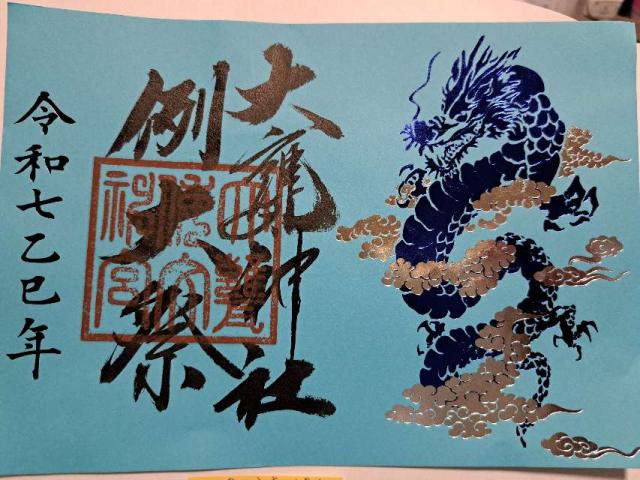 大龍神社
例大祭
令和七乙巳年